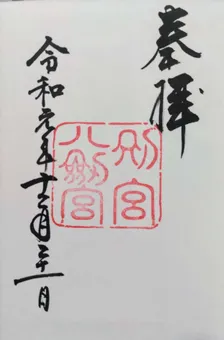 奉拝
別宮
八剣宮
令和元年十二月三十一日